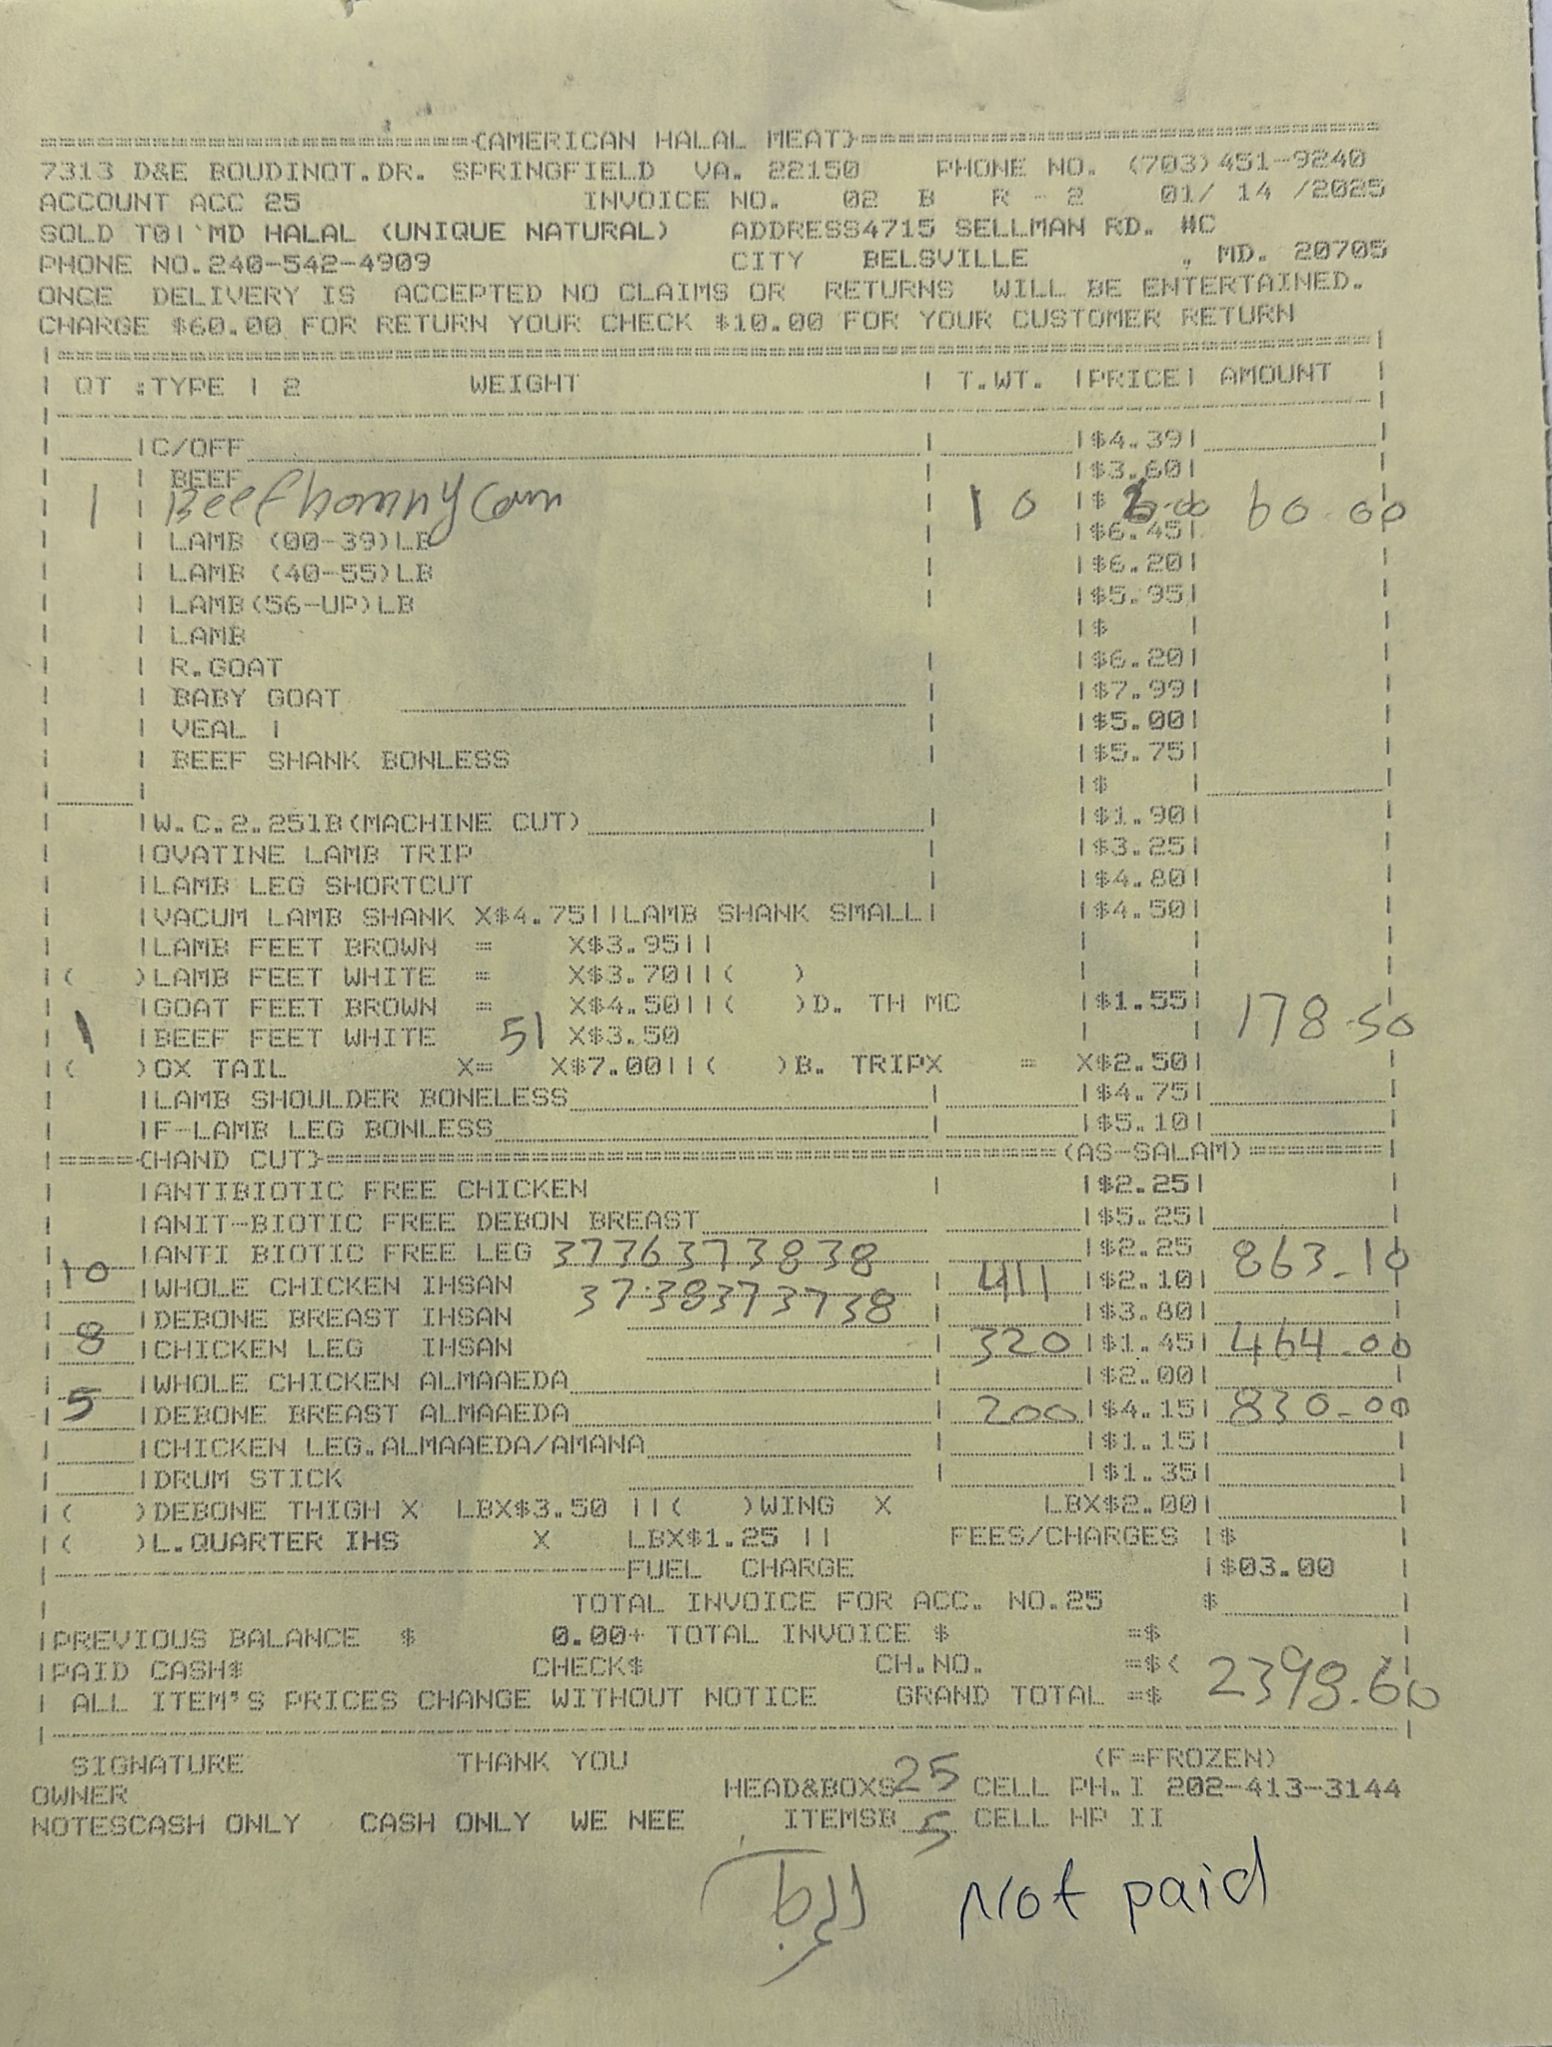 ================================{AMERICAN HALAL MEAT}================================
7313 D&E BOUDINOT.DR. SPRINGFIELD VA. 22150 PHONE NO. (703)451-9240
ACCOUNT ACC 25 INVOICE NO. 02 B R - 2 01/ 14 /2025
SOLD TO|`MD HALAL (UNIQUE NATURAL) ADDRESS4715 SELLMAN RD. #C
PHONE NO.240-542-4909 CITY BELSVILLE , MD. 20705
ONCE DELIVERY IS ACCEPTED NO CLAIMS OR RETURNS WILL BE ENTERTAINED.
CHARGE $60.00 FOR RETURN YOUR CHECK $10.00 FOR YOUR CUSTOMER RETURN
QT :TYPE | 2 WEIGHT | T.WT. |PRICE| AMOUNT
|C/OFF |$4.39|
| BEEF |$3.60|
1 | Beef homnycom 10 |$ 6.00 60.00
| LAMB (00-39)LB |$6.45|
| LAMB (40-55)LB |$6.20|
| LAMB(56-UP)LB |$5.95|
| LAMB |$ |
| R.GOAT |$6.20|
| BABY GOAT |$7.99|
| VEAL | |$5.00|
| BEEF SHANK BONLESS |$5.75|
| |$ |
|W.C.2.251B(MACHINE CUT) |$1.90|
|OVATINE LAMB TRIP |$3.25|
|LAMB LEG SHORTCUT |$4.80|
|VACUM LAMB SHANK X$4.75||LAMB SHANK SMALL| |$4.50|
|LAMB FEET BROWN = X$3.95||
|( )LAMB FEET WHITE = X$3.70||( )
|GOAT FEET BROWN = X$4.50||( )D. TH MC |$1.55|
1 |BEEF FEET WHITE 51 X$3.50 | | 178.50
|( )OX TAIL X= X$7.00||( )B. TRIPX = X$2.50|
|LAMB SHOULDER BONELESS |$4.75|
|F-LAMB LEG BONLESS |$5.10|
|====={HAND CUT}==========================================(AS-SALAM)=======|
|ANTIBIOTIC FREE CHICKEN |$2.25|
|ANIT-BIOTIC FREE DEBON BREAST |$5.25|
|ANTI BIOTIC FREE LEG 3736373838 |$2.25
10 |WHOLE CHICKEN IHSAN 3738373738 411 |$2.10| 863.10
|DEBONE BREAST IHSAN |$3.80|
8 |CHICKEN LEG IHSAN 320 |$1.45| 464.00
|WHOLE CHICKEN ALMAAEDA |$2.00|
5 |DEBONE BREAST ALMAAEDA 200 |$4.15| 830.00
|CHICKEN LEG.ALMAAEDA/AMANA |$1.15|
|DRUM STICK |$1.35|
|( )DEBONE THIGH X LBX$3.50 ||( )WING X LBX$2.00|
|( )L.QUARTER IHS X LBX$1.25 || FEES/CHARGES |$
FUEL CHARGE |$03.00
TOTAL INVOICE FOR ACC. NO.25 $
|PREVIOUS BALANCE $ 0.00+ TOTAL INVOICE $ =$
|PAID CASH$ CHECK$ CH.NO. =$<
| ALL ITEM'S PRICES CHANGE WITHOUT NOTICE GRAND TOTAL =$ 2398.60
SIGNATURE THANK YOU (F=FROZEN)
OWNER HEAD&BOXS 25 CELL PH.I 202-413-3144
NOTESCASH ONLY CASH ONLY WE NEE ITEMSB 5 CELL HP II
Not paid